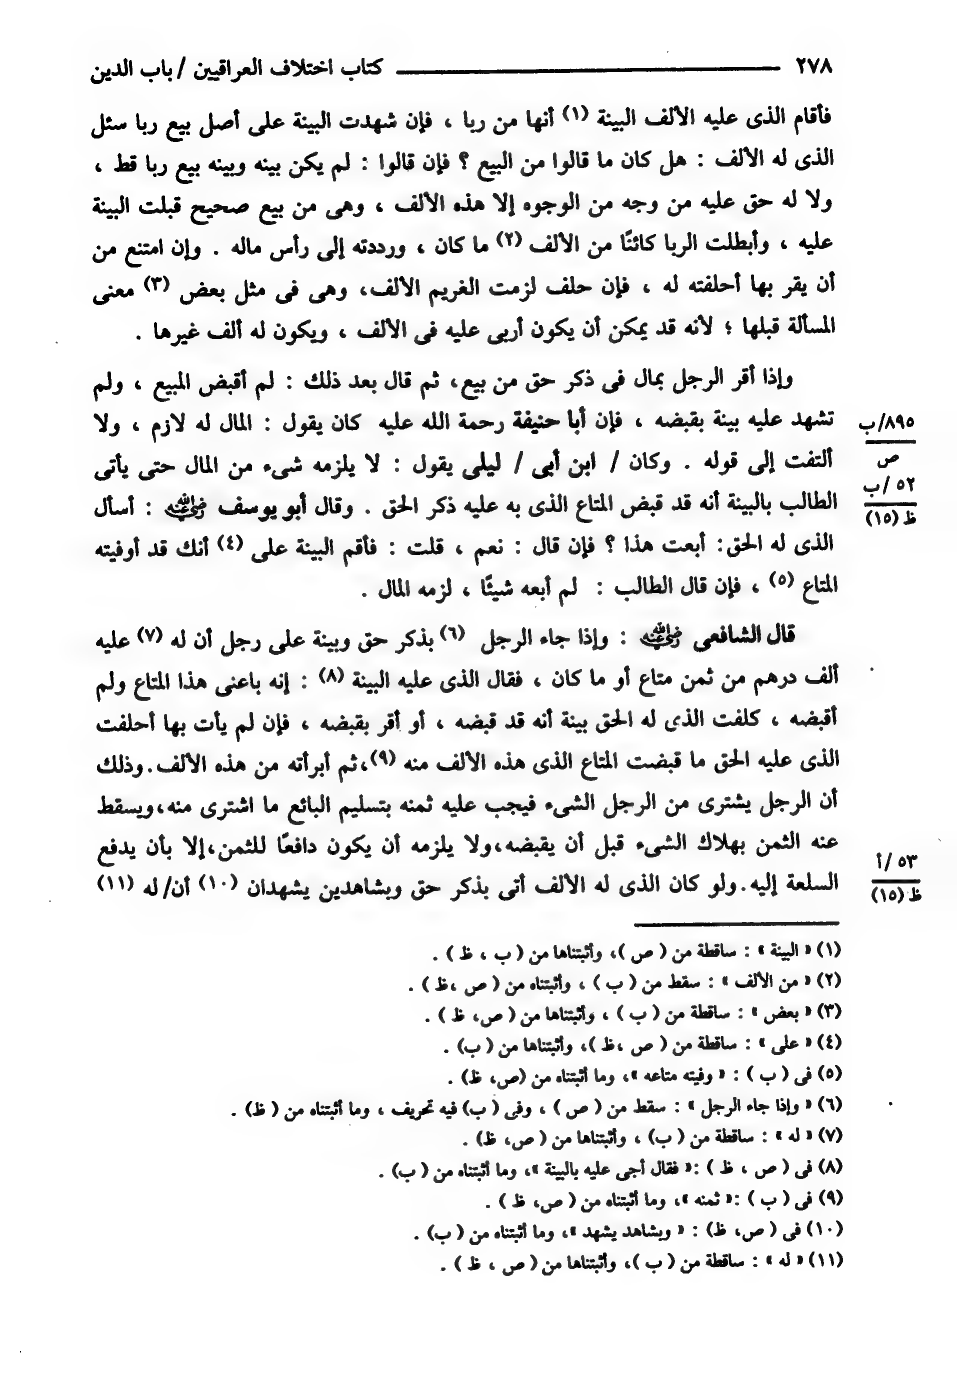 ٢٧٨ ــــــــــــــــــــــــــــــــ كتاب اختلاف العراقيين / باب الدين
فأقام الذى عليه الألف البينة (١) أنها من ربا ، فإن شهدت البينة على أصل بيع ربا سئل
الذى له الألف : هل كان ما قالوا من البيع ؟ فإن قالوا : لم يكن بينه وبينه بيع ربا قط ،
ولا له حق عليه من وجه من الوجوه إلا هذه الألف ، وهى من بيع صحيح قبلت البينة
عليه ، وأبطلت الربا كائنًا من الألف (٢) ما كان ، ورددته إلى رأس ماله . وإن امتنع من
أن يقر بها أحلفته له ، فإن حلف لزمت الغريم الألف، وهى فى مثل بعض (٣) معنى
المسألة قبلها ؛ لأنه قد يمكن أن يكون أربى عليه فى الألف ، ويكون له ألف غيرها .
وإذا أقر الرجل بمال فى ذكر حق من بيع، ثم قال بعد ذلك : لم أقبض المبيع ، ولم
تشهد عليه بينة بقبضه ، فإن أبا حنيفة رحمة الله عليه كان يقول : المال له لازم ، ولا
٨٩٥/ب
ص
ألتفت إلى قوله . وكان / ابن أبى / ليلى يقول : لا يلزمه شىء من المال حتى يأتى
٥٢ /ب
ظ (١٥)
الطالب بالبينة أنه قد قبض المتاع الذى به عليه ذكر الحق . وقال أبو يوسف رضي الله عنه : أسأل
الذى له الحق: أبعت هذا ؟ فإن قال : نعم ، قلت : فأقم البينة على (٤) أنك قد أوفيته
المتاع (٥) ، فإن قال الطالب : لم أبعه شيئًا ، لزمه المال .
قال الشافعى رضي الله عنه : وإذا جاء الرجل (٦) بذكر حق وبينة على رجل أن له (٧) عليه
ألف درهم من ثمن متاع أو ما كان ، فقال الذى عليه البينة (٨) : إنه باعنى هذا المتاع ولم
أقبضه ، كلفت الذى له الحق بينة أنه قد قبضه ، أو أقر بقبضه ، فإن لم يأت بها أحلفت
الذى عليه الحق ما قبضت المتاع الذى هذه الألف منه (٩)،ثم أبرأته من هذه الألف.وذلك
أن الرجل يشترى من الرجل الشىء فيجب عليه ثمنه بتسليم البائع ما اشترى منه،ويسقط
عنه الثمن بهلاك الشىء قبل أن يقبضه،ولا يلزمه أن يكون دافعًا للثمن،إلا بأن يدفع
٥٣ /أ
ظ (١٥)
السلعة إليه.ولو كان الذى له الألف أتى بذكر حق وبشاهدين يشهدان (١٠) أن/ له (١١)
(١) « البينة » : ساقطة من ( ص )، وأثبتناها من ( ب ، ظ ) .
(٢) « من الألف » : سقط من ( ب ) ، وأثبتناه من ( ص ،ظ ) .
(٣) « بعض » : ساقطة من ( ب ) ، وأثبتناها من ( ص، ظ ) .
(٤) « على » : ساقطة من ( ص ،ظ )، وأثبتناها من ( ب) .
(٥) فى ( ب ) : « وفيته متاعه »، وما أثبتناه من (ص، ظ) .
(٦) « وإذا جاء الرجل » : سقط من ( ص ) ، وفى ( ب) فيه تحريف ، وما أثبتناه من ( ظ) .
(٧) « له » : ساقطة من ( ب) ، وأثبتناها من ( ص، ظ) .
(٨) فى ( ص ، ظ ) :« فقال أجى عليه بالبينة »، وما أثبتناه من ( ب) .
(٩) فى ( ب ) :« ثمنه »، وما أثبتناه من ( ص، ظ ) .
(١٠) فى ( ص، ظ) : « وبشاهد يشهد »، وما أثبتناه من ( ب) .
(١١) « له » : ساقطة من ( ب )، وأثبتناها من ( ص ، ظ ) .